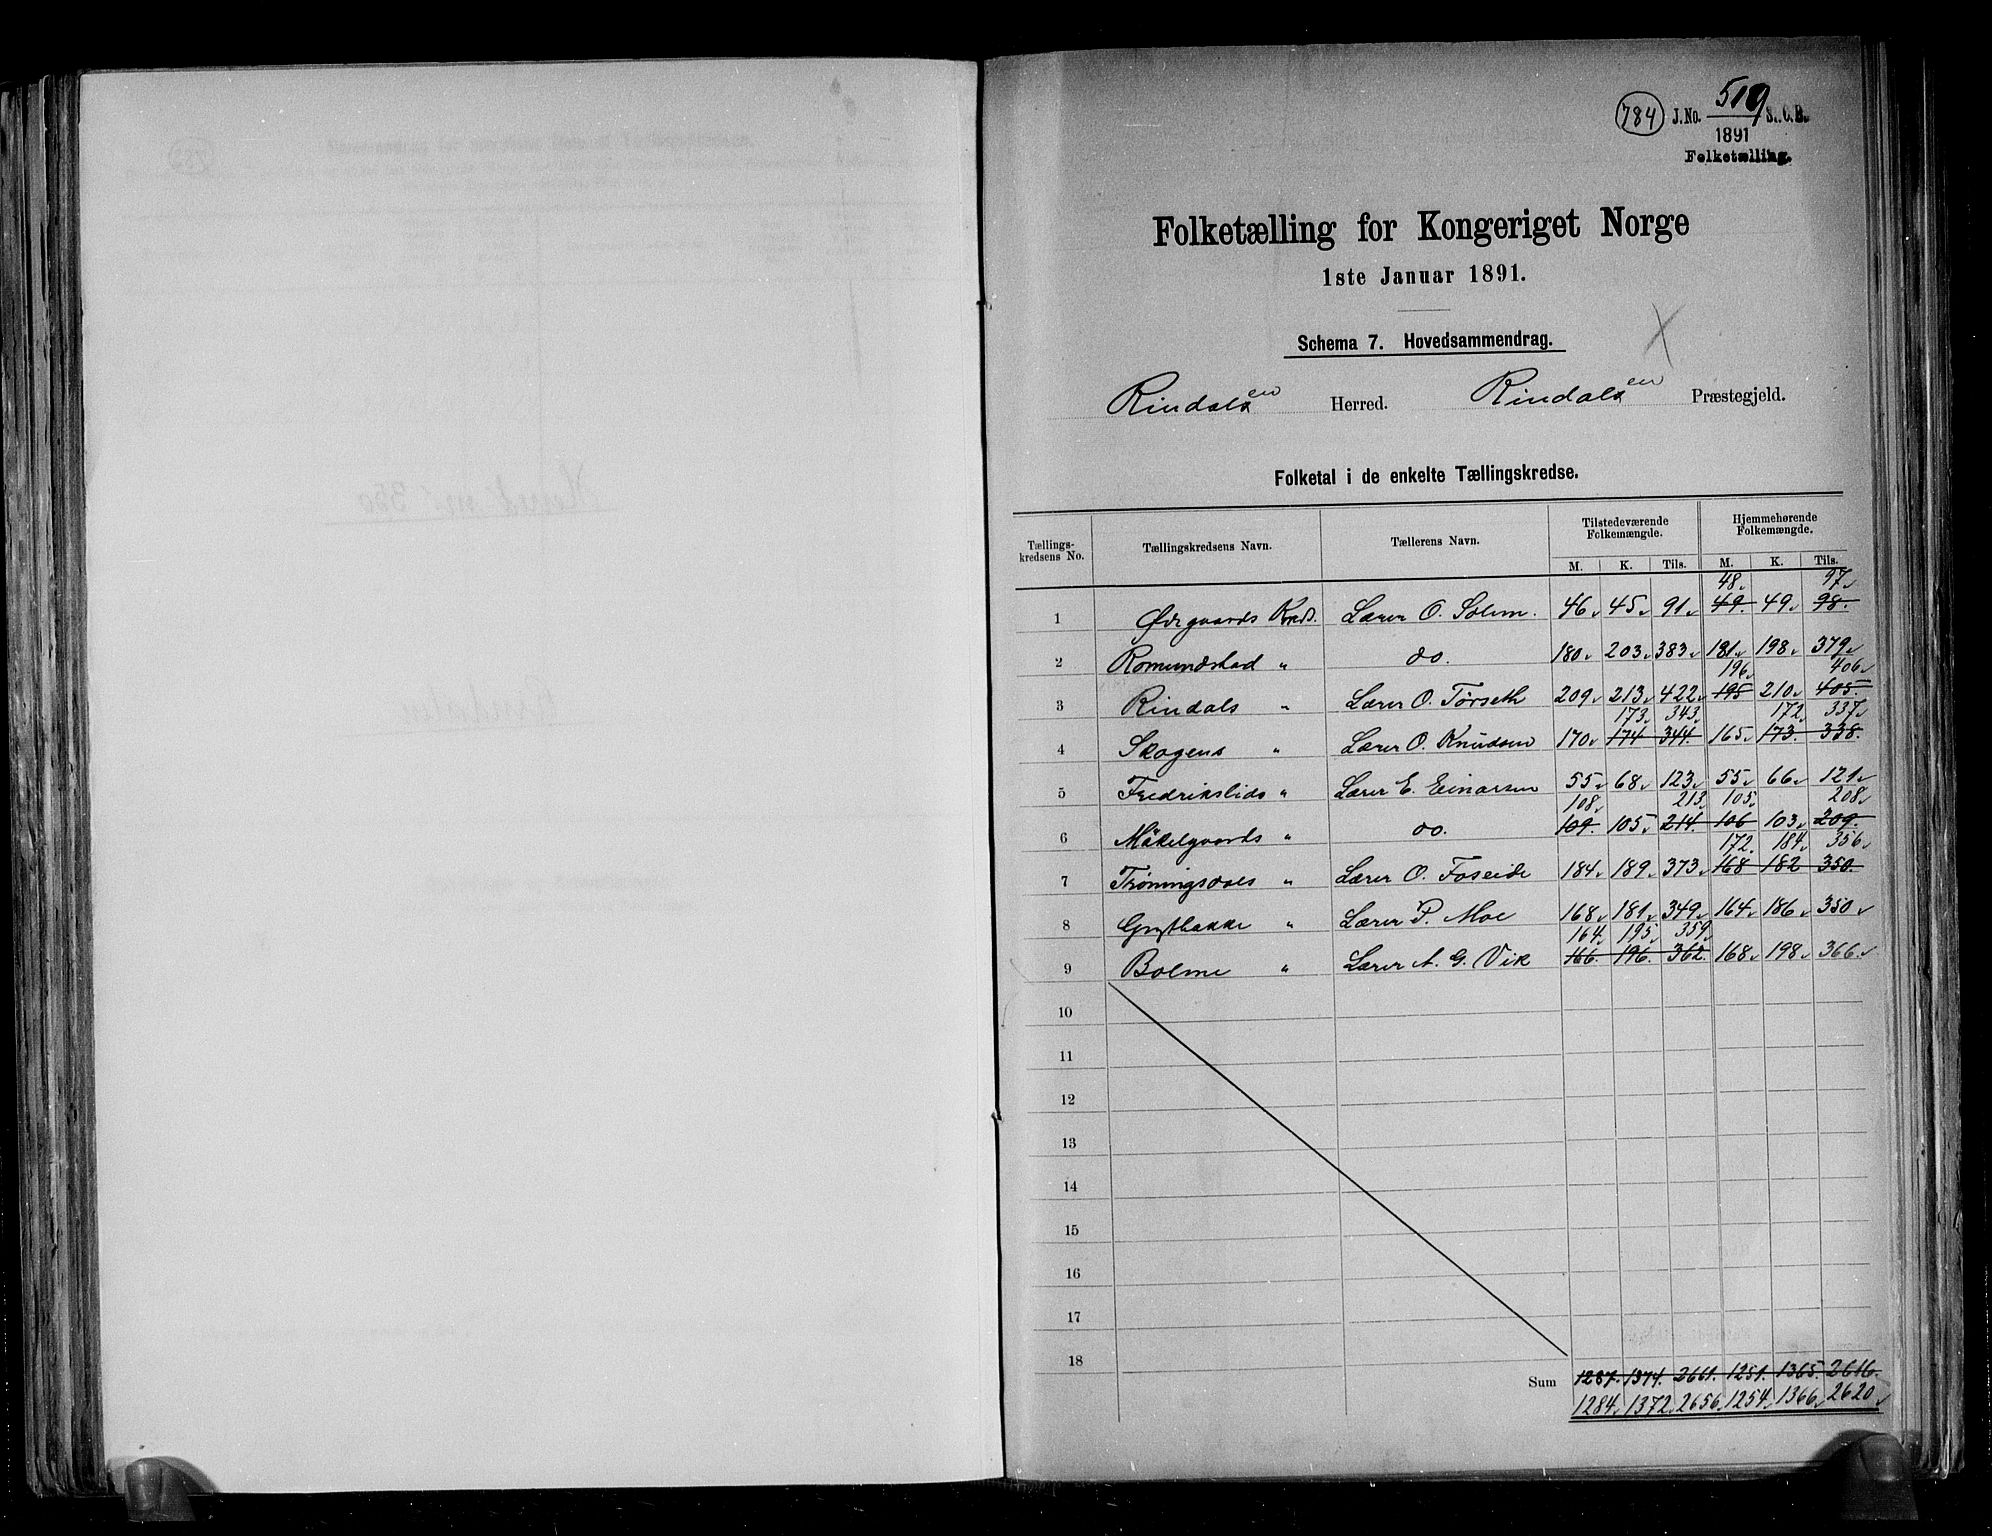 784 J.No. 519 S.C.B.
1891
Folketælling.
Folketælling for Kongeriget Norge
1ste Januar 1891.
Schema 7. Hovedsammendrag.
Rindalen Herred. Rindalen Præstegjeld.
Folketal i de enkelte Tællingskredse.
Tællings-kredsens No. Tællingskredsens Navn. Tællerens Navn. Tilstedeværende Folkemængde. Hjemmehørende Folkemængde.
M. K. Tils. M. K. Tils.
48 97
1 Ørgaards Kreds. Lærer O. Solem. 46 45 91 49 49 98
2 Romundstad " do. 180 203 383 181 198 379
196 406
3 Rindals " Lærer O. Tørseth 209 213 422 195 210 405
173 343 172 337
4 Skogens " Lærer O. Knudsen 170 174 344 165 173 338
5 Fredrikslids " Lærer E. Einarsen 55 68 123 55 66 121
108 213 105 208
6 " do. 109 105 214 106 103 209
172 184 356
7 Trøningsdals " Lærer O. Foseide 184 189 373 168 182 350
8 Grytbakke " Lærer P. Moe 168 181 349 164 186 350
164 195 359
9 Bolme " Lærer A. G. Vik 166 196 362 168 198 366
10
11
12
13
14
15
16
17
18
Sum 1287 1374 2661 1251 1365 2616
1284 1372 2656 1254 1366 2620